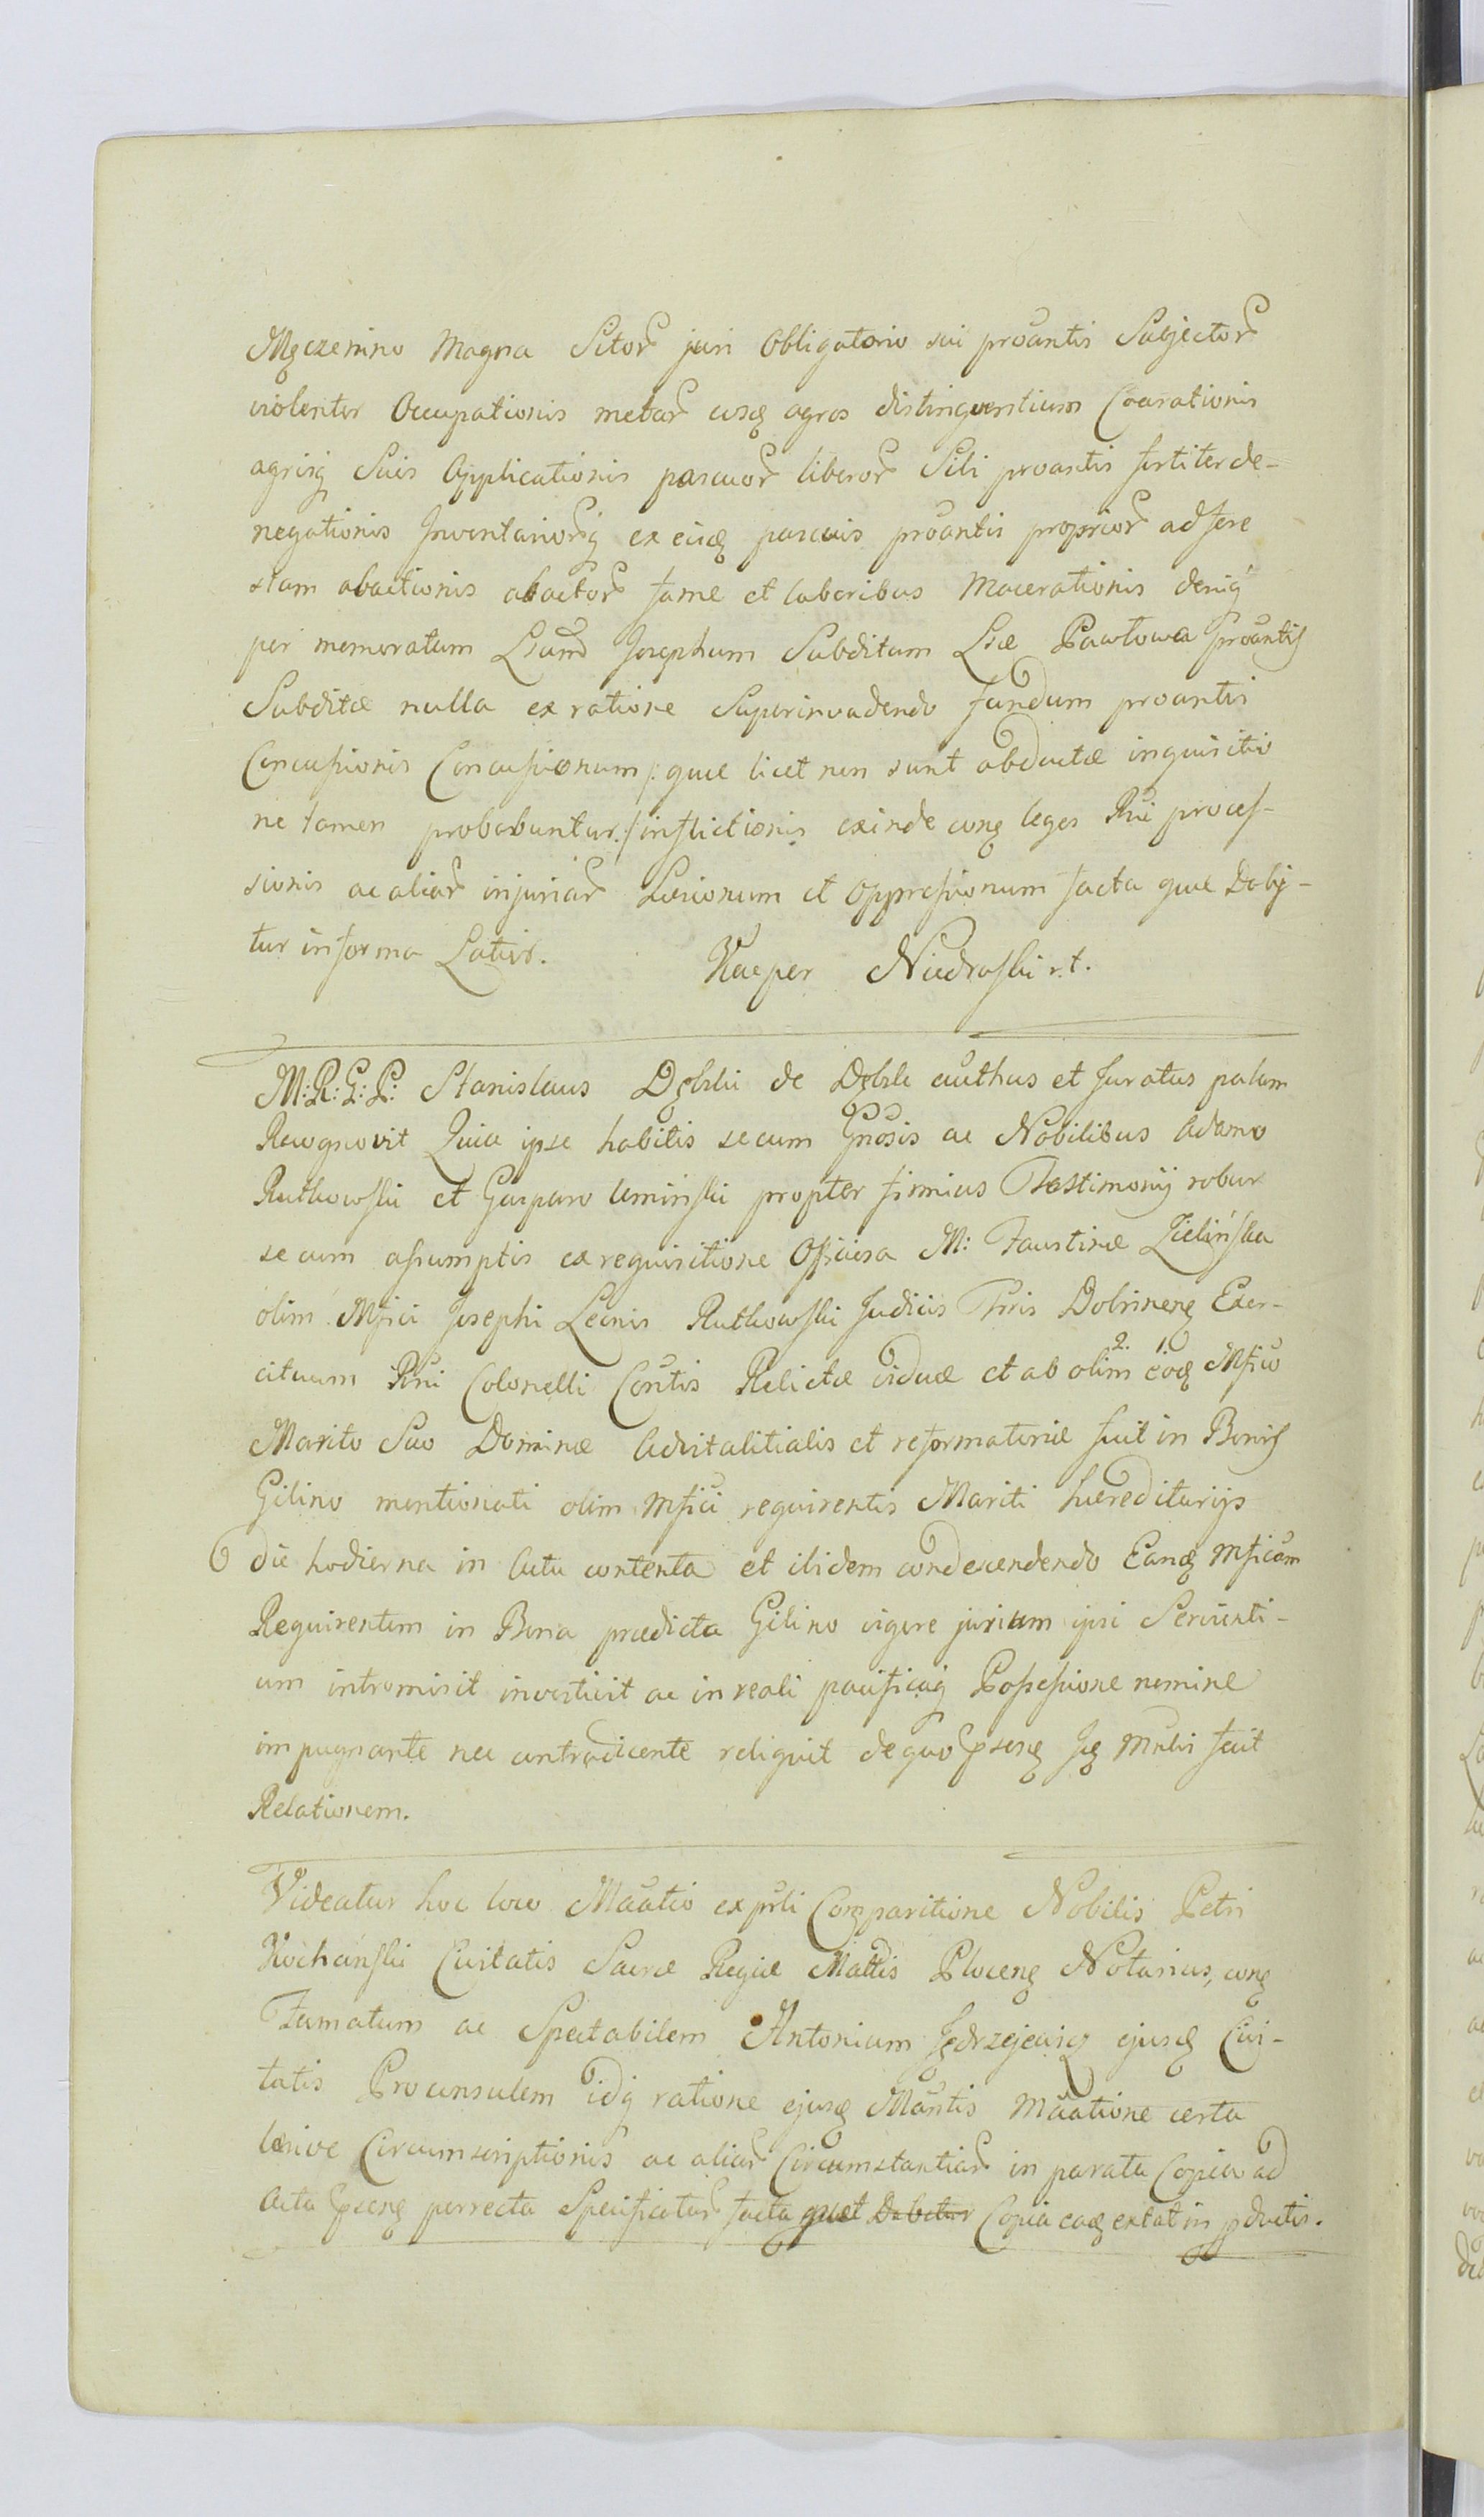 Męczenino Magna Sitor juri Obligatorio sui proantis Subjector
violenter Occupationis metar eosq agros distinguentium Coarationis
agrisq Suis Applicationis pascuor liberor Sibi proantis fortiter de-
negationis Inventariorq ex eisq pascuis proantis proprior ad fere
stam abactionis abactor fame et laboribus Macerationis deniq
per memoratum Lsum Josephum Subditum Lsæ Pawłowa proantis
Subditæ nulla ex ratione Superinvadendo fundum proantis
Concussionis Concussionum /: quæ licet non sunt obductæ inquisitio
ne tamen probabuntur :/ inflictionis exinde conq leges Rni proces-
sionis ac aliar injuriar Læsionum et Oppressionum facta quæ Dabi-
tur in forma Latiori.
Kacper Niedroski r.t.
M:R:G:P: Stanislaus Dębski de Dębsk authus et Juratus palam
Recognovit Quia ipse habitis secum Gnosis ac Nobilibus Adamo
Rutkowski et Gasparo Umiński propter firmius Testimonij robur
secum assumptis ex requisitione Officiosa M: Faustinæ Zielińska
olim Mfici Josephi Leonis Rutkowski Judicis Tris Dobrinenę Exer-
cituum Rni Colonelli Contis Relictæ viduæ et ab olim 2. eoq 1. Mfico
Marito Suo Dominæ Advitalitialis et reformatoriæ fuit in Bonis
Gilino mentionati olim Mfici requirentis Mariti hæreditarijs
die hodierna in Actu contenta et ibidem condescendendo Eanq Mficam
Requirentem in Bona prædicta Gilino vigore jurium ipsi Servienti-
um intromisit investivit ac in reali pacificaq Possessione nemine
impugnante nec contradicente reliquit de quo psenq Sę Mnlis fecit
Relationem.
Videatur hoc loco Maatio ex prli Comparitione Nobilis Petri
Kochański Civitatis Sacræ Regiæ Mattis Plocenę Notarius, conq
Famatum ac Spectabilem Antonium Jędrzejewicz ejusq Civi-
tatis Proconsulem idq ratione ejusq Mantis Maatione certa
læsivæ Circumscriptionis ac aliar Circumstantiar in parata Copia ad
Acta psenę porrecta Specificatur facta quæt Dabitur Copia eaq extat in pductis.